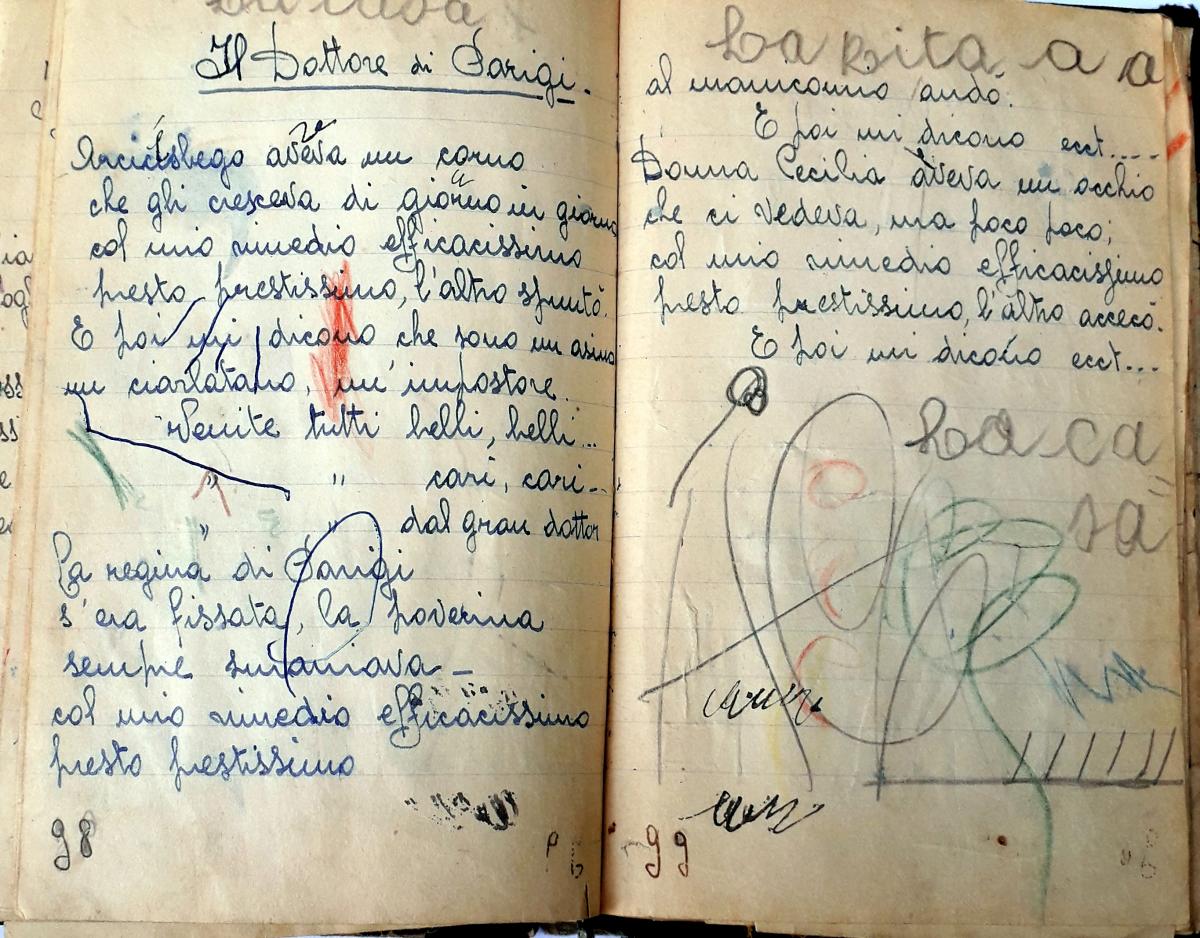 Il Dottore di Parigi.
aveva un corno
che gli cresceva di giorno in giorno
col mio rimedio efficacissimo
presto prestissimo, l'altro spuntò.
E poi mi dicono che sono un asino
un ciarlatano, un'impostore.
Venite tutti belli, belli...
" " cari, cari...
" " dal gran dottor
La regina di Parigi
s'era fissata, la poverina
sempre smaniava –
col mio rimedio efficacissimo
presto prestissimo
98
La Rita a a
al manicomio andò.
E poi mi dicono ecct....
Donna Cecilia aveva un occhio
che ci vedeva, ma poco poco;
col mio rimedio efficacissimo
presto prestissimo, l'altro accecò.
E poi mi dicono ecct...
La ca
sa
99